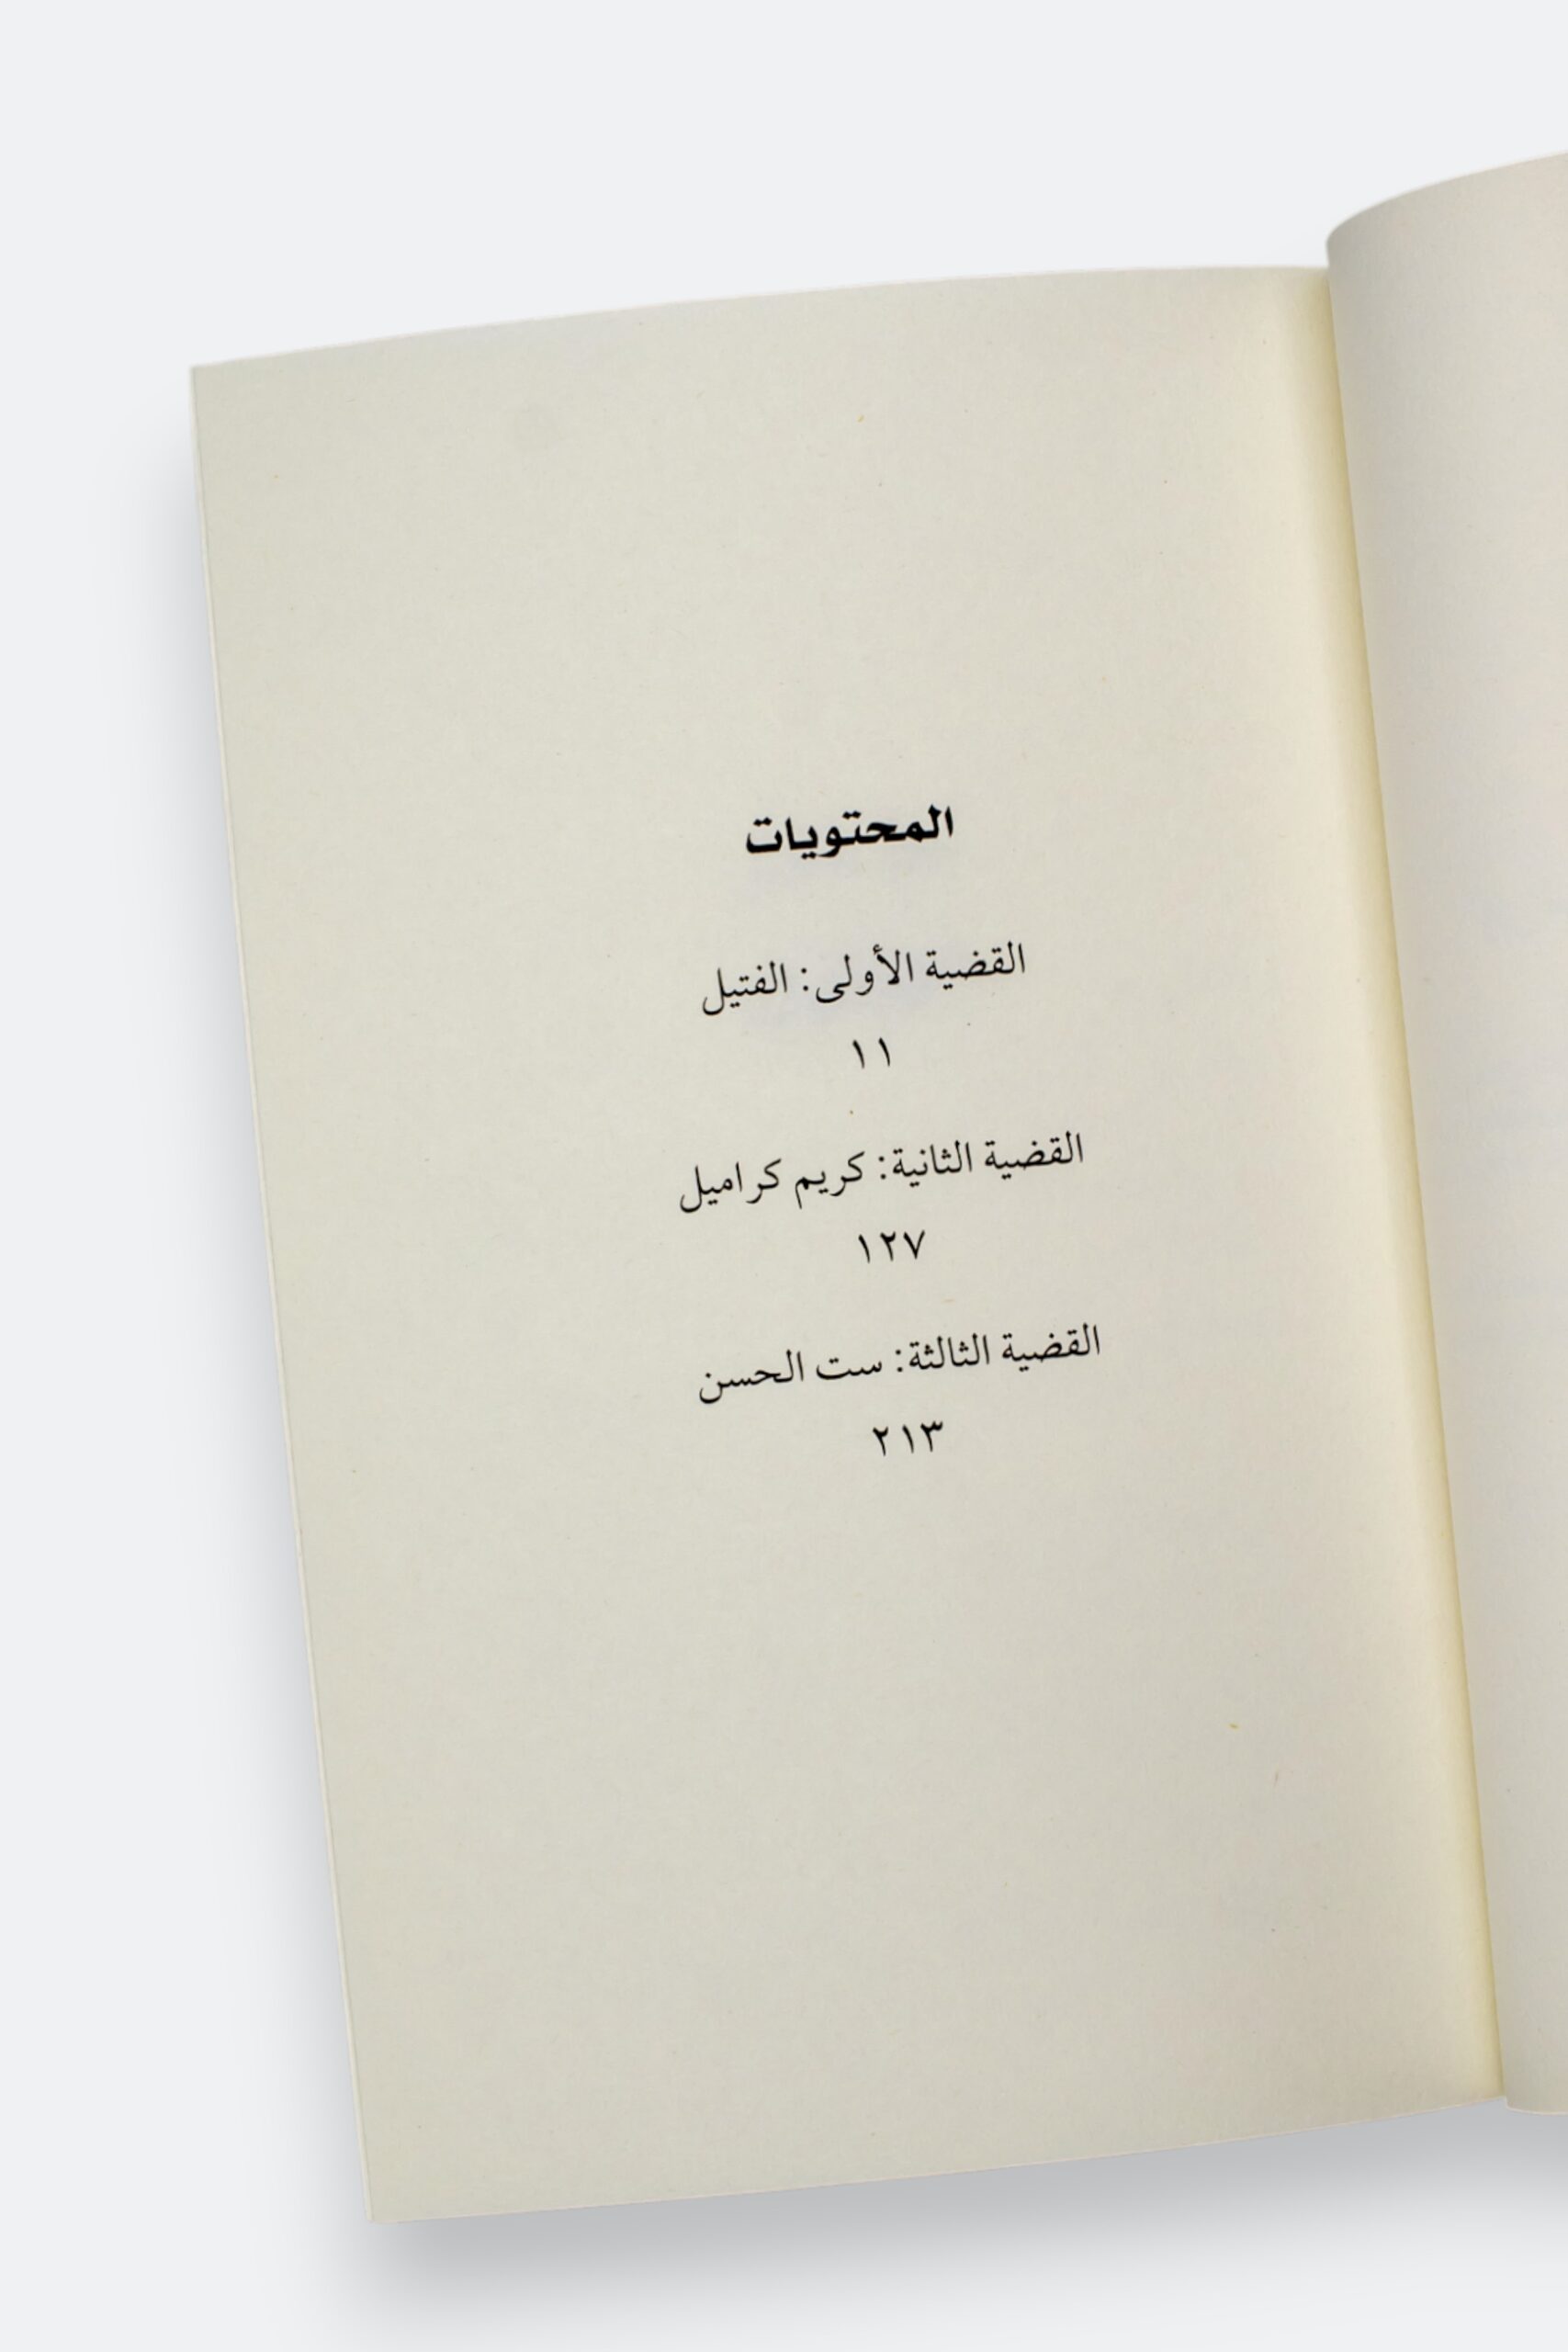 المحتويات
القضية الأولى: الفتيل
١١
القضية الثانية: كريم كراميل
١٢٧
القضية الثالثة: ست الحسن
٢١٣